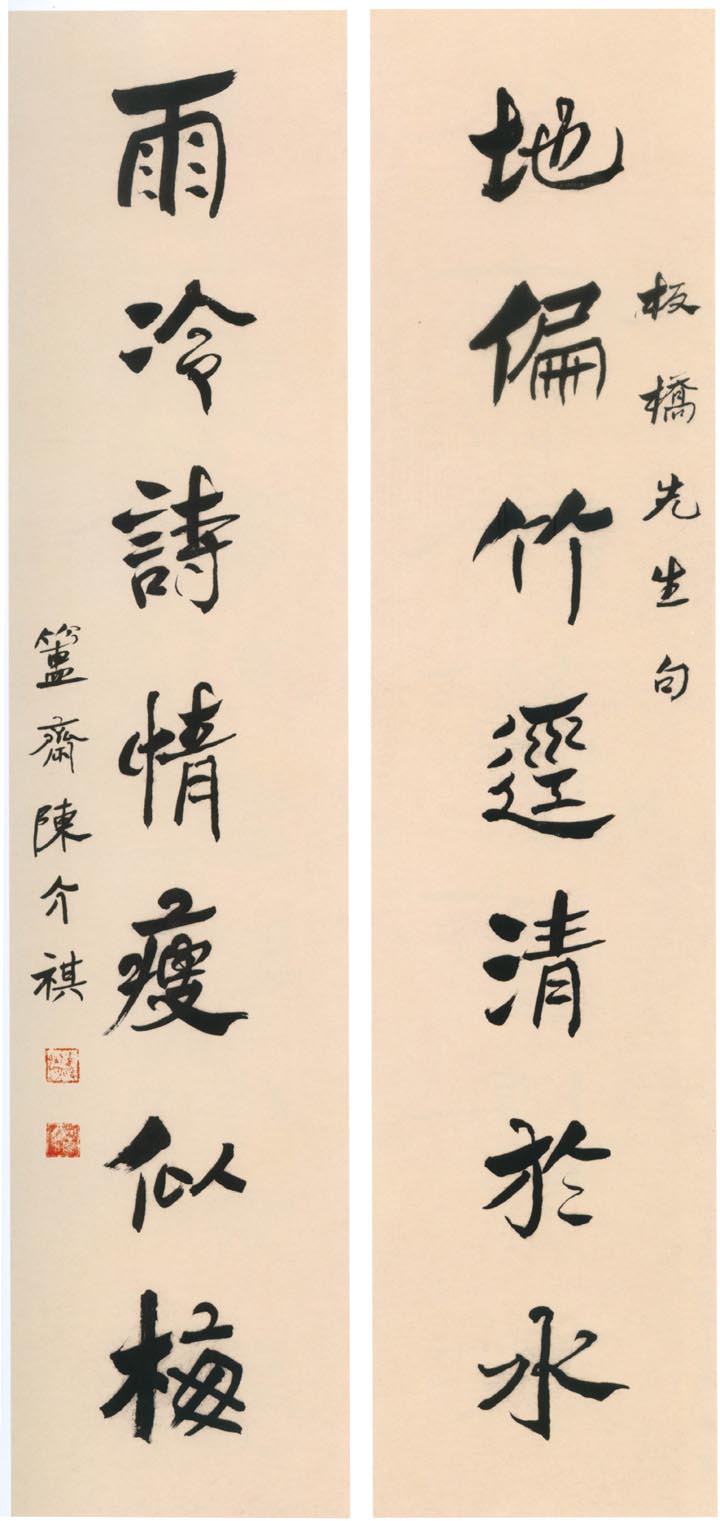 板橋先生句
地偏竹逕清於水
雨冷詩情瘦似梅
簠齋陳介祺